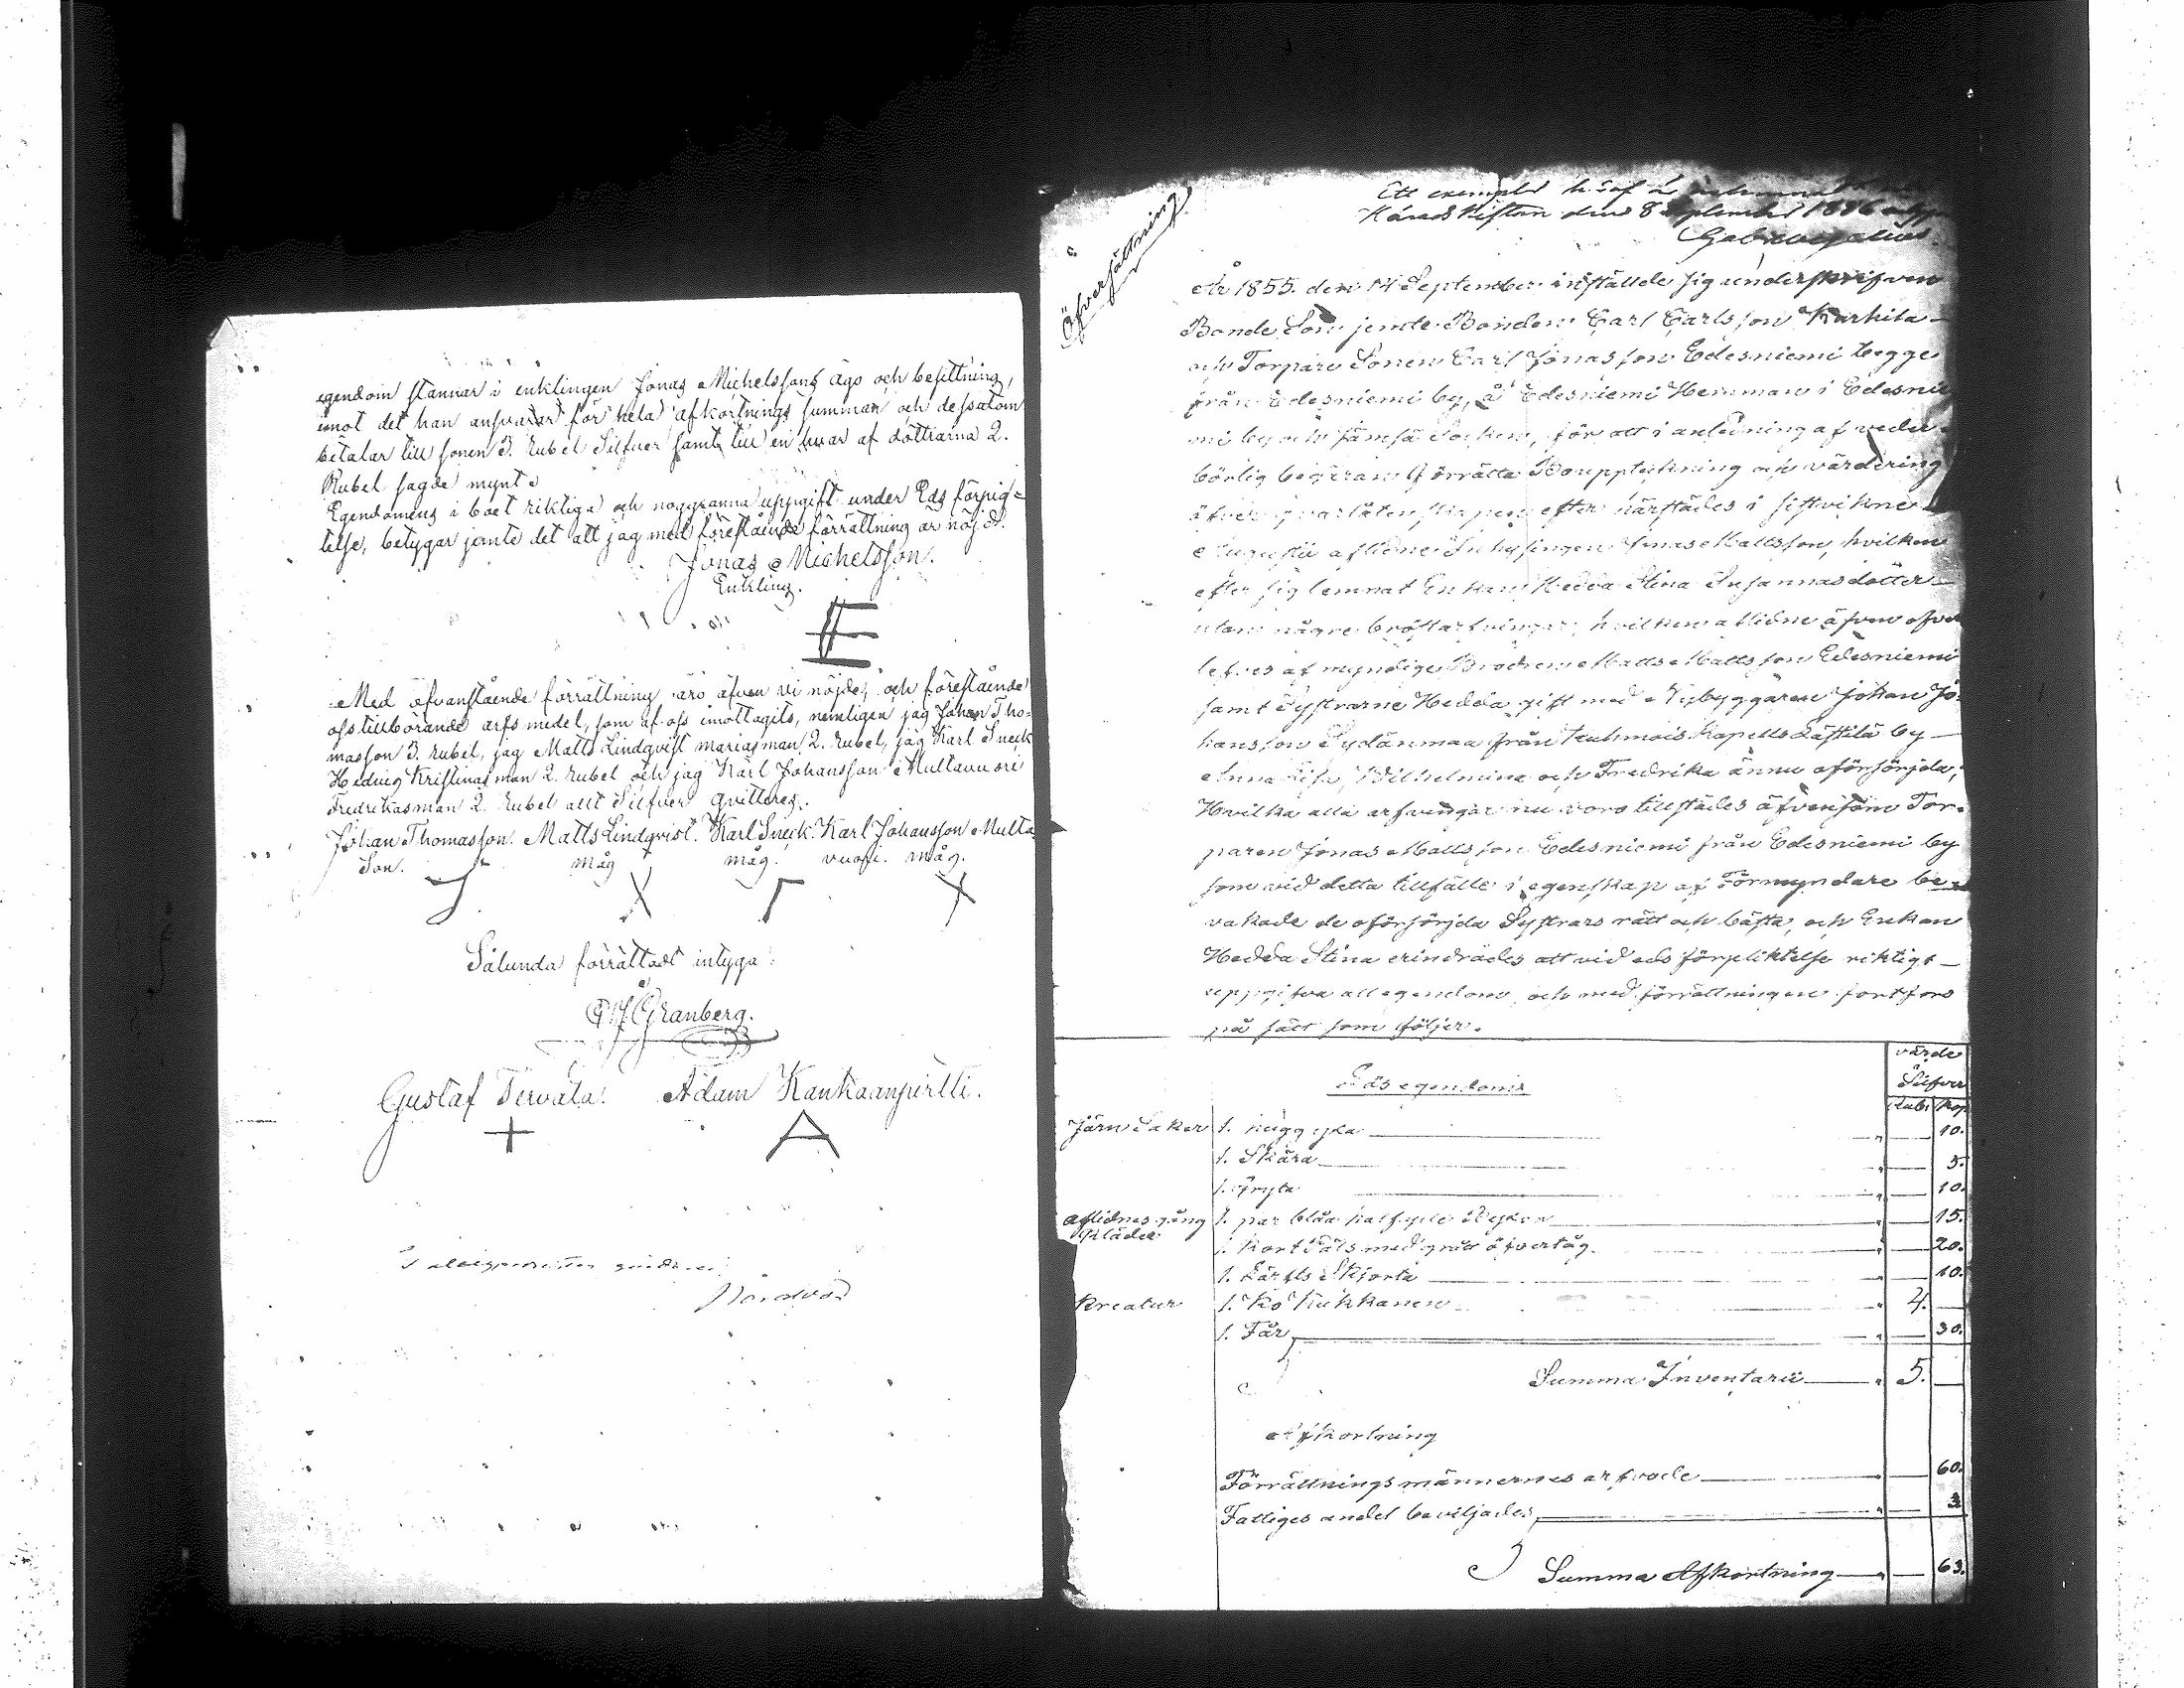 egendom stannar i enklingen Jonas Michelssons ägo och besittning,
imot det han ansvarar för hela afkortnings summan och dessutom
betalar till sonen 3. Rubel Silfver samt till en hvar af döttrarna 2.
Rubel sagde mynt.
Egendomens i boet riktiga och noggranna uppgift under Eds förpig=
telse, betygar jemte det att jag med förestående förrättning är nöjd.
Jonas Michelsson.
Enkling.
Med ofvanstående förrättning äro äfven vi nöjde, och förestående
oss tillhörande arfs medel, som af oss imottagits, nemligen jag Johan Tho=
masson 3. rubel, jag Matts Lindqvist marias man 2. rubel, jag Karl Sneck
Hedvig Kristinas man 2. rubel och jag Karl Johansson Multavuori
Fredrikas man 2. rubel allt Silfver qvitteras.
Johan Thomasson. Matts Lindqvist. Karl Sneck. Karl Johansson Multa
Son. måg måg. vuori. måg.
Sålunda förrättadt intyga:
Granberg.
Gustaf Tervala. Adam Kankaanpirtti.
A
Öfversättning
Ett exemplar
den 8 September 1856
År 1855. den 14 September inställde sig underskrifven
Bonde Son jemte Bonden Carl Carlsson Karhila
och Torpare Sonen Carl Jonasson Edesniemi begge
från Edesniemi by, å Edesniemi Hemman i Edesnie
mi by och Jämsä Socken, för att i anledning af veder
börlig begäran förrätta Bouppteckning och värdering
öfver qvarlåtenskapen efter härstädes i sistvikne
Augustii aflidne Inhysingen Jonas Mattsson, hvilken
efter sig lemnat Enkan Hedda Stina Susannasdotter
utan några bröstarfvingar, hvilken aflidne äfven öfver
lefves af myndige Brodren Matts Mattsson Edesniemi
samt Systrarne Hedda gift med Nybyggaren Johan Jo
hansson Sydänmaa från Kuhmois Kapells Lästilä by
Anna Lisa, Wilhelmina och Fredrika ännu oförsörjda;
Hvilka alla arfvingar nu voro tillstädes äfvensom Tor=
paren Jonas Mattsson Edesniemi från Edesniemi by
som vid detta tillfälle i egenskap af Förmyndare be
vakade de oförsörjda Systrars rätt och bästa, och Enkan
Hedda Stina erindrades att vid eds förpliktelse riktigt
uppgifva all egendom och med förrättningen fortfors
på sätt som följer.
värde
Silfver
Lös egendomen
Rub. Kop
Järn Saker 1. huggyxa 10.
1. Skära 5.
1. Gryta 10.
Aflidnes gång 1. par blåa halfyle Byxor 15.
Kläder 1. Kort Päls med grått öfvertåg 20.
1. Lärfts Skjorta 10.
Kreatur 1. Ko Kukkanen 4.
1. Får 30.
Summa Inventarii 5.
Afkortning
Förrättningsmännernes arfvode 60.
Fattiges andel beviljades 3
Summa Afkortning 63.